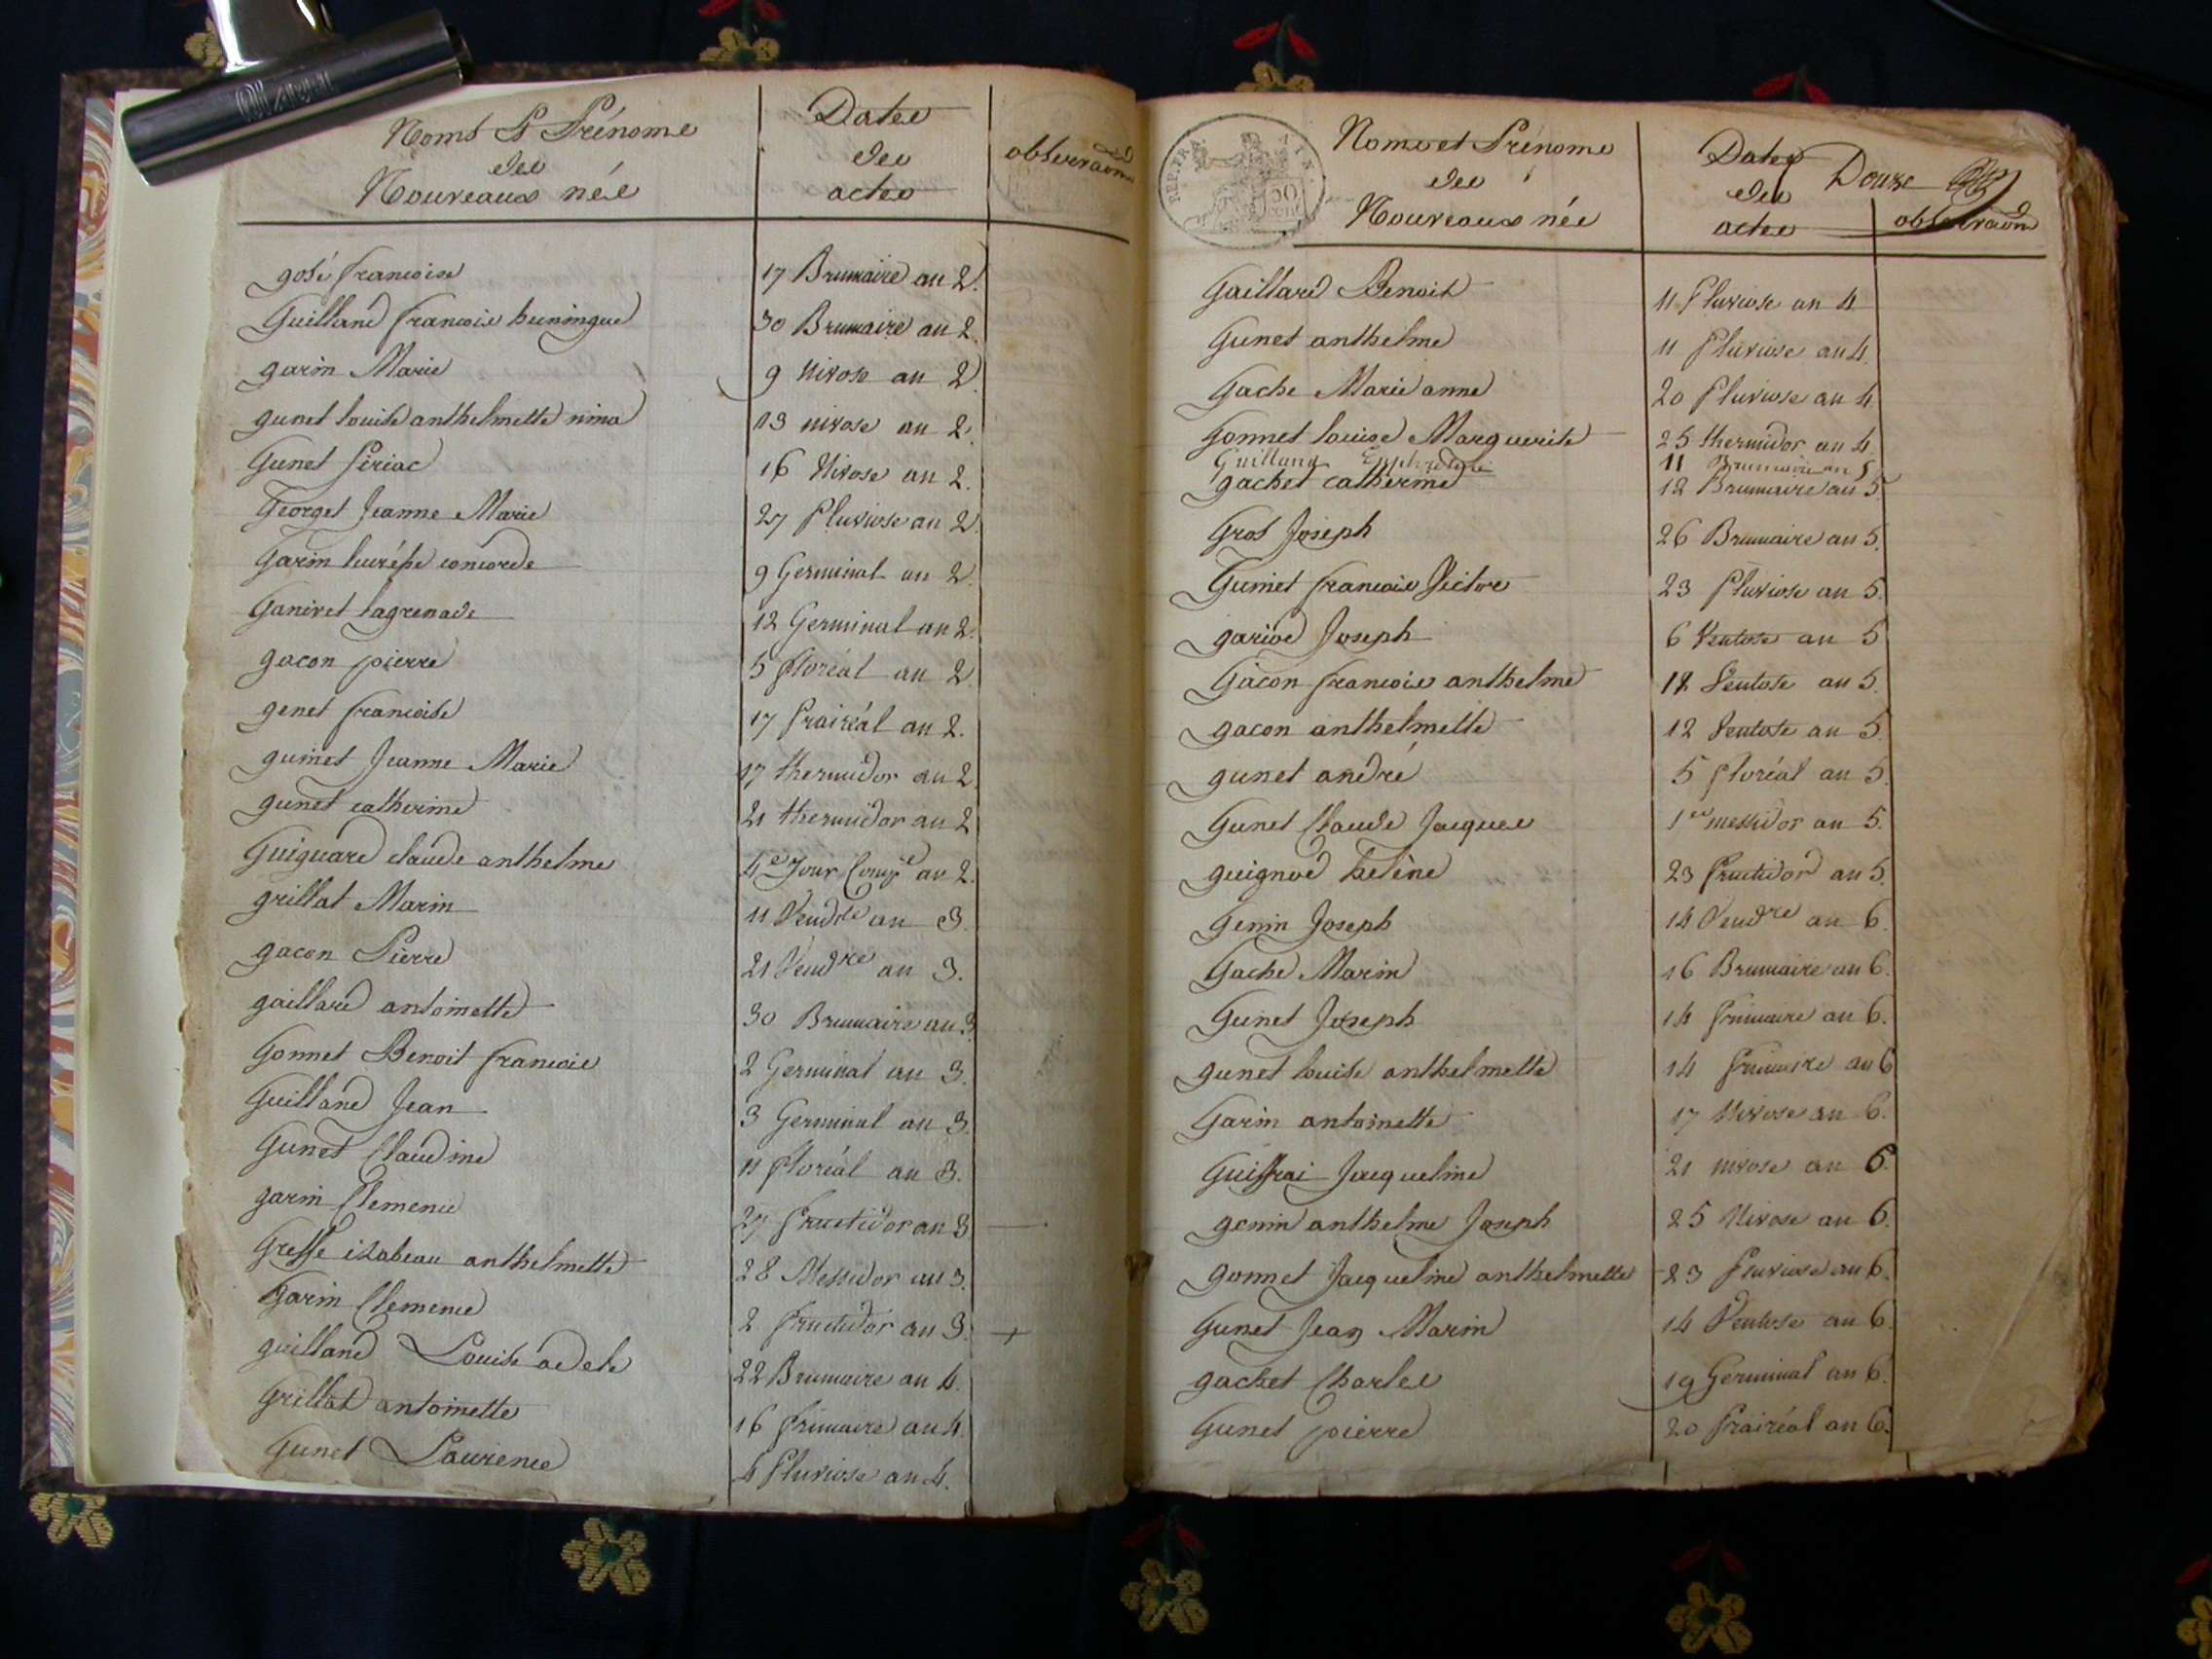 Noms & Prénoms
des
Nouveaux nés
Dates
des
actes
observaons
gosé francoise 17 Brumaire an 2.
Guilland francois huningue 30 Brumaire an 2.
garin Marie 9 Nivose an 2
gunet louise anthelmette nina 13 nivose an 2.
Gunet Ciriac 16 Nivose an 2.
Georget Jeanne Marie 27 Pluviose an 2.
Garin lucrése concorde 9 Germinal an 2.
Ganivet lagrenade 12 Germinal an 2.
gacon pierre 5 floréal an 2.
genet francoise 17 Prairéal an 2.
gumet Jeanne Marie 17 thermidor an 2
gunet catherine 21 thermidor an 2
Guiguard claude anthelme 4e Jour Comp.e an 2.
grillat Marin 11 Vendre an 3.
gacon Pierre 21 Vendre an 3.
gaillard antoinette 30 Brumaire an 3
Gonnet Benoit francois 2 Germinal an 3.
Guilland Jean 3 Germinal an 3.
Gunet Claudine 11 floréal an 3.
garin Clemence 27 fructidor an 3
Greffe izabeau anthelmette 28 Messidor an 3.
Garin Clemence 2 fructidor an 3. +
guilland Louise adele 22 Brumaire an 4.
Grillat antoinette 16 frimaire an 4.
Gunet Laurence 4 Pluviose an 4.
REP. FRA.
50
cent
Noms et Prénoms
des
Nouveaux nés
Dates
des
actes
Douze
observaons
Gaillard Benoit 11 Pluviose an 4
Gunet anthelme 11 Pluviose an 4.
Gache Marie anne 20 Pluviose an 4
Gonnet louise Marguerite 25 thermidor an 4.
Guilland 11 Brumaire an 5
gachet catherine 12 Brumaire an 5
Gros Joseph 26 Brumaire an 5.
Gumet francois Victor 23 Pluviose an 5.
gariod Joseph 6 Ventose an 5
Gacon francois anthelme 12 Ventose an 5.
gacon anthelmette 12 Ventose an 5.
gunet andré 5 floréal an 5.
Gunet Claude Jacques 1er messidor an 5.
guignod heléne 23 fructidor an 5.
Genin Joseph 14 Vendre an 6.
Gache Marin 16 Brumaire an 6.
Gunet Joseph 14 frimaire an 6.
gunet louise anthelmette 14 frimaire an 6
Garin antoinette 17 Nivose an 6.
Guiffrai Jacqueline 21 nivose an 6.
genin anthelme Joseph 25 Nivose an 6.
gonnet Jacqueline anthelmette 23 Pluviose an 6.
Gunet Jean Marin 14 Ventose an 6.
gachet Charles 19 Germinal an 6.
Gunet pierre 20 Prairéal an 6.